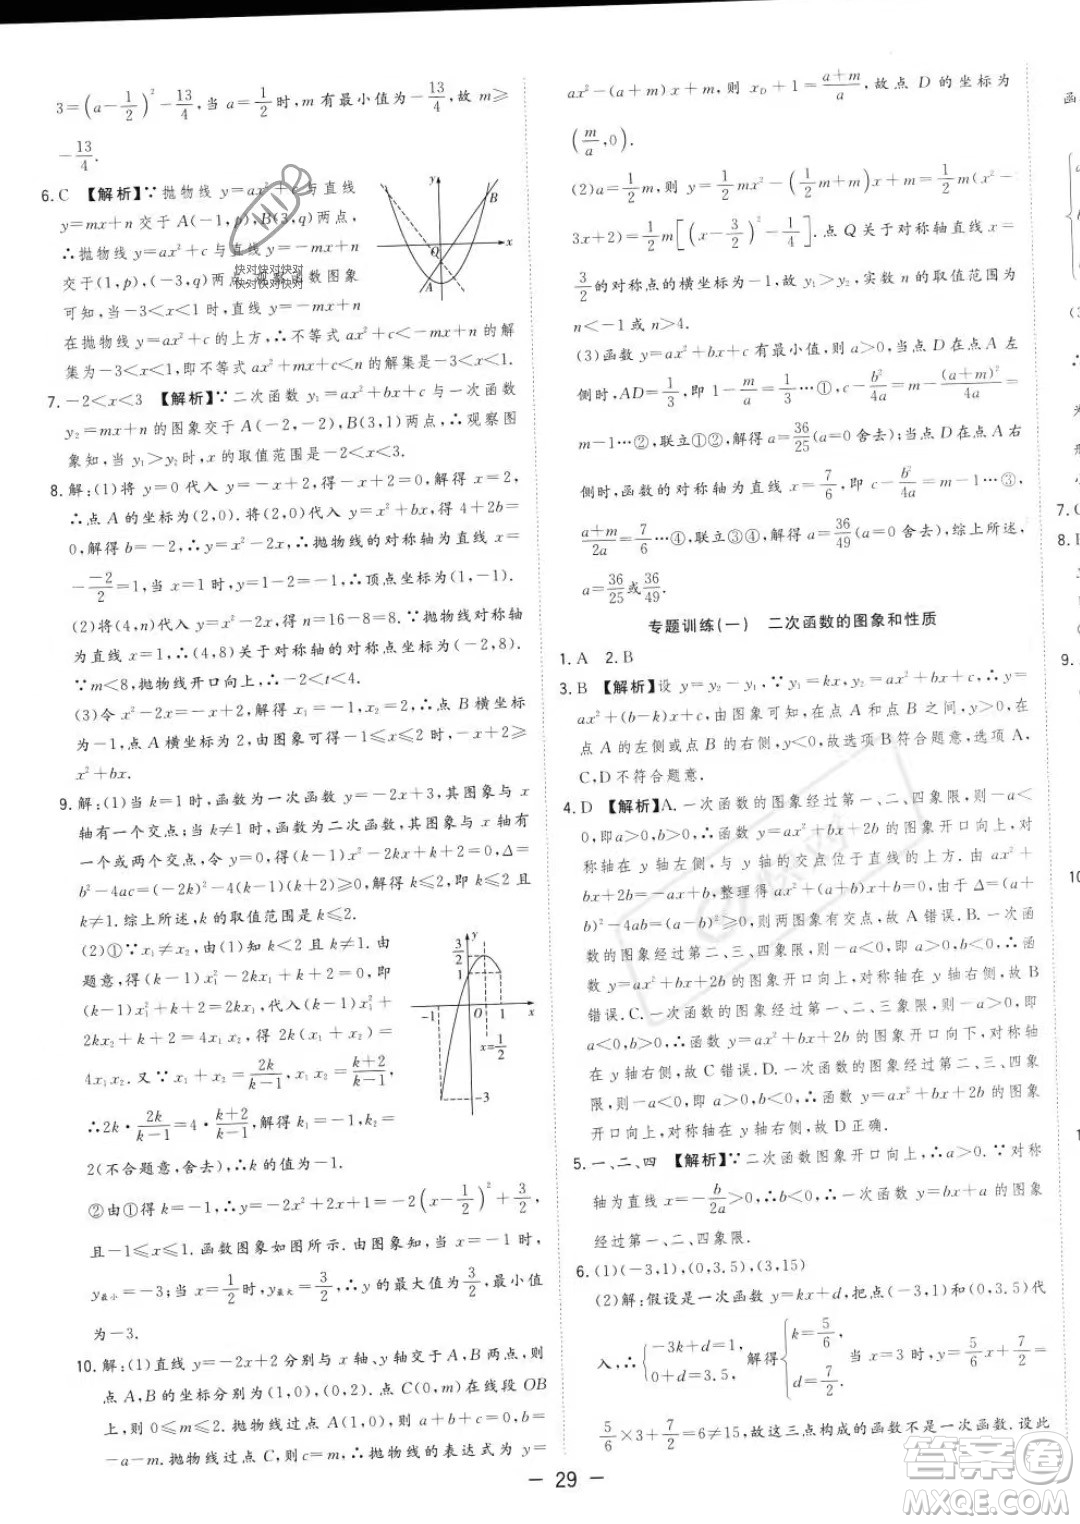 3=(a-1/2)²-13/4,当 a=1/2时,m 有最小值为-13/4,故 m≥
-13/4.
6.C 【解析】∵抛物线 y=ax²+c 与直线
y=mx+n 交于 A(-1,p),B(3,q)两点,
∴抛物线 y=ax²+c 与直线 y=-mx+n
交于(1,p),(-3,q)两点,观察函数图象
可知,当-3<x<1时,直线 y=-mx+n
在抛物线 y=ax²+c 的上方,∴不等式 ax²+c<-mx+n 的解
集为-3<x<1,即不等式 ax²+mx+c<n 的解集是-3<x<1.
7.-2<x<3 【解析】∵二次函数 y₁=ax²+bx+c 与一次函数
y₂=mx+n 的图象交于 A(-2,-2),B(3,1)两点,∴观察图
象知,当 y₁>y₂时,x 的取值范围是-2<x<3.
8.解:(1)将 y=0 代入 y=-x+2,得-x+2=0,解得 x=2,
∴点 A 的坐标为(2,0).将(2,0)代入 y=x²+bx,得 4+2b=
0,解得 b=-2,∴y=x²-2x,∴抛物线的对称轴为直线 x=
-(-2)/2=1,当 x=1时,y=1-2=-1,∴顶点坐标为(1,-1).
(2)将(4,n)代入 y=x²-2x,得 n=16-8=8.∵抛物线对称轴
为直线 x=1,∴(4,8)关于对称轴的对称点坐标为(-2,8).
∵m<8,抛物线开口向上,∴-2<t<4.
(3)令 x²-2x=-x+2,解得 x₁=-1,x₂=2,∴点 B 横坐标
为-1,点 A 横坐标为2,由图象可得,-1<x<2时,-x+2>
x²+bx.
9.解:(1)当 k=1时,函数为一次函数 y=-2x+3,其图象与 x
轴有一个交点;当 k≠1时,函数为二次函数,其图象与 x 轴有
一个或两个交点,令 y=0,得(k-1)x²-2kx+k+2=0,Δ=
b²-4ac=(-2k)²-4(k-1)(k+2)≥0,解得 k≤2,即 k≤2且
k≠1.综上所述,k 的取值范围是 k≤2.
(2)①∵x₁≠x₂,由(1)知 k<2 且 k≠1.由
题意,得(k-1)x₁²-2kx₁+k+2=0,即
(k-1)x₁²+k+2=2kx₁,代入(k-1)x₁²+
2kx₂+k+2=4x₁x₂,得 2k(x₁+x₂)=
4x₁x₂.又∵x₁+x₂=2k/(k-1),x₁x₂=(k+2)/(k-1),
∴2k·2k/(k-1)=4·(k+2)/(k-1),解得 k₁=-1,k₂=
2(不合题意,舍去),∴k 的值为-1.
②由①得 k=-1,∴y=-2x²+2x+1=-2(x-1/2)²+3/2,
且-1≤x≤1.函数图象如图所示.由图象知,当 x=-1时,
y最小=-3;当 x=1/2时,y最大=3/2,∴y 的最大值为3/2,最小值
为-3.
10.解:(1)直线 y=-2x+2 分别与 x 轴、y 轴交于 A,B 两点,则
点 A,B 的坐标分别为(1,0),(0,2).点 C(0,m)在线段 OB
上,则 0≤m≤2.抛物线过点 A(1,0),则 a+b+c=0,抛物线
过点 C,则 c=m,则 b=-a-m.抛物线的表达式为 y=
ax²-(a+m)x+m,当 y=0时,则 x_D+1=(a+m)/a,故点 D 的坐标为
(m/a,0).
(2)a=1/2m,则抛物线 y=1/2mx²-(1/2m+m)x+m=1/2m(x²-
3x+2)=1/2m[(x-3/2)²-1/4].点 Q 关于对称轴直线 x=
3/2的对称点的横坐标为-1,∵抛物线开口向上,故实数 n 的取值范围为
n<-1或 n>4.
(3)函数 y=ax²+bx+c 有最小值,则 a>0,当点 D 在点A 左
侧时,AD=1/3,即 1-m/a=1/3…①,c-b²/4a=m-(a+m)²/4a=
m-1…②,联立①②,解得 a=36/25(a=0舍去);当点 D 在点A 右
侧时,函数的对称轴为直线 x=7/6,即 c-b²/4a=m-1…③,
(a+m)/2a=7/6…④,联立③④,解得 a=36/49(a=0 舍去),综上所述,
a=36/25或36/49.
专题训练(一) 二次函数的图象和性质
1.A 2.B
3.B 【解析】设 y=y₂-y₁,∵y₁=kx,y₂=ax²+bx+c,∴y=
ax²+(b-k)x+c,由图象可知,在点 A 和点 B 之间,y>0,在
点 A 的左侧或点 B 的右侧,y<0,故选项 B 符合题意,选项 A、
C、D 不符合题意.
4.D 【解析】A.一次函数的图象经过第一、二、四象限,则-a<
0,即a>0,b>0,∴函数 y=ax²+bx+2b 的图象开口向上,对
称轴在 y 轴左侧,与 y 轴的交点位于直线的上方.由 ax²+
bx+2b=-ax+b,整理得 ax²+(a+b)x+b=0,由于Δ=(a+
b)²-4ab=(a-b)²≥0,则两图象有交点,故 A 错误.B.一次函
数的图象经过第二、三、四象限,则-a<0,b<0,即 a>0,b<0,
∴函数 y=ax²+bx+2b 的图象开口向上,对称轴在 y 轴右侧,故 B
错误.C.一次函数的图象经过第一、二、三象限,则-a>0,b>
0,即 a<0,b>0,∴函数 y=ax²+bx+2b 的图象开口向下,对称轴
在 y 轴右侧,故 C 错误.D.一次函数的图象经过第二、三、四象
限,则-a<0,b<0,即 a>0,b<0,∴函数 y=ax²+bx+2b 的图象
开口向上,对称轴在 y 轴右侧,故 D 正确.
5.一、二、四 【解析】∵二次函数图象开口向上,∴a>0.∵对称
轴为直线 x=-b/2a>0,∴b<0,∴一次函数 y=bx+a 的图象
经过第一、二、四象限.
6.(1)(-3,1),(0,3.5),(3,15)
(2)解:假设是一次函数 y=kx+d,把点(-3,1)和(0,3.5)代
入,∴{-3k+d=1, d=3.5, 解得{k=5/6, d=7/2. 当 x=3时,y=5/6x+7/2=
5/6×3+7/2=6≠15,故这三点构成的函数不是一次函数.设此
— 29 —
y
B
x
O
A
y
3/2
1
-1
O
1
x
x=1/2
-3
快对快对快对
快对快对快对
答案圈
MXQE.COM